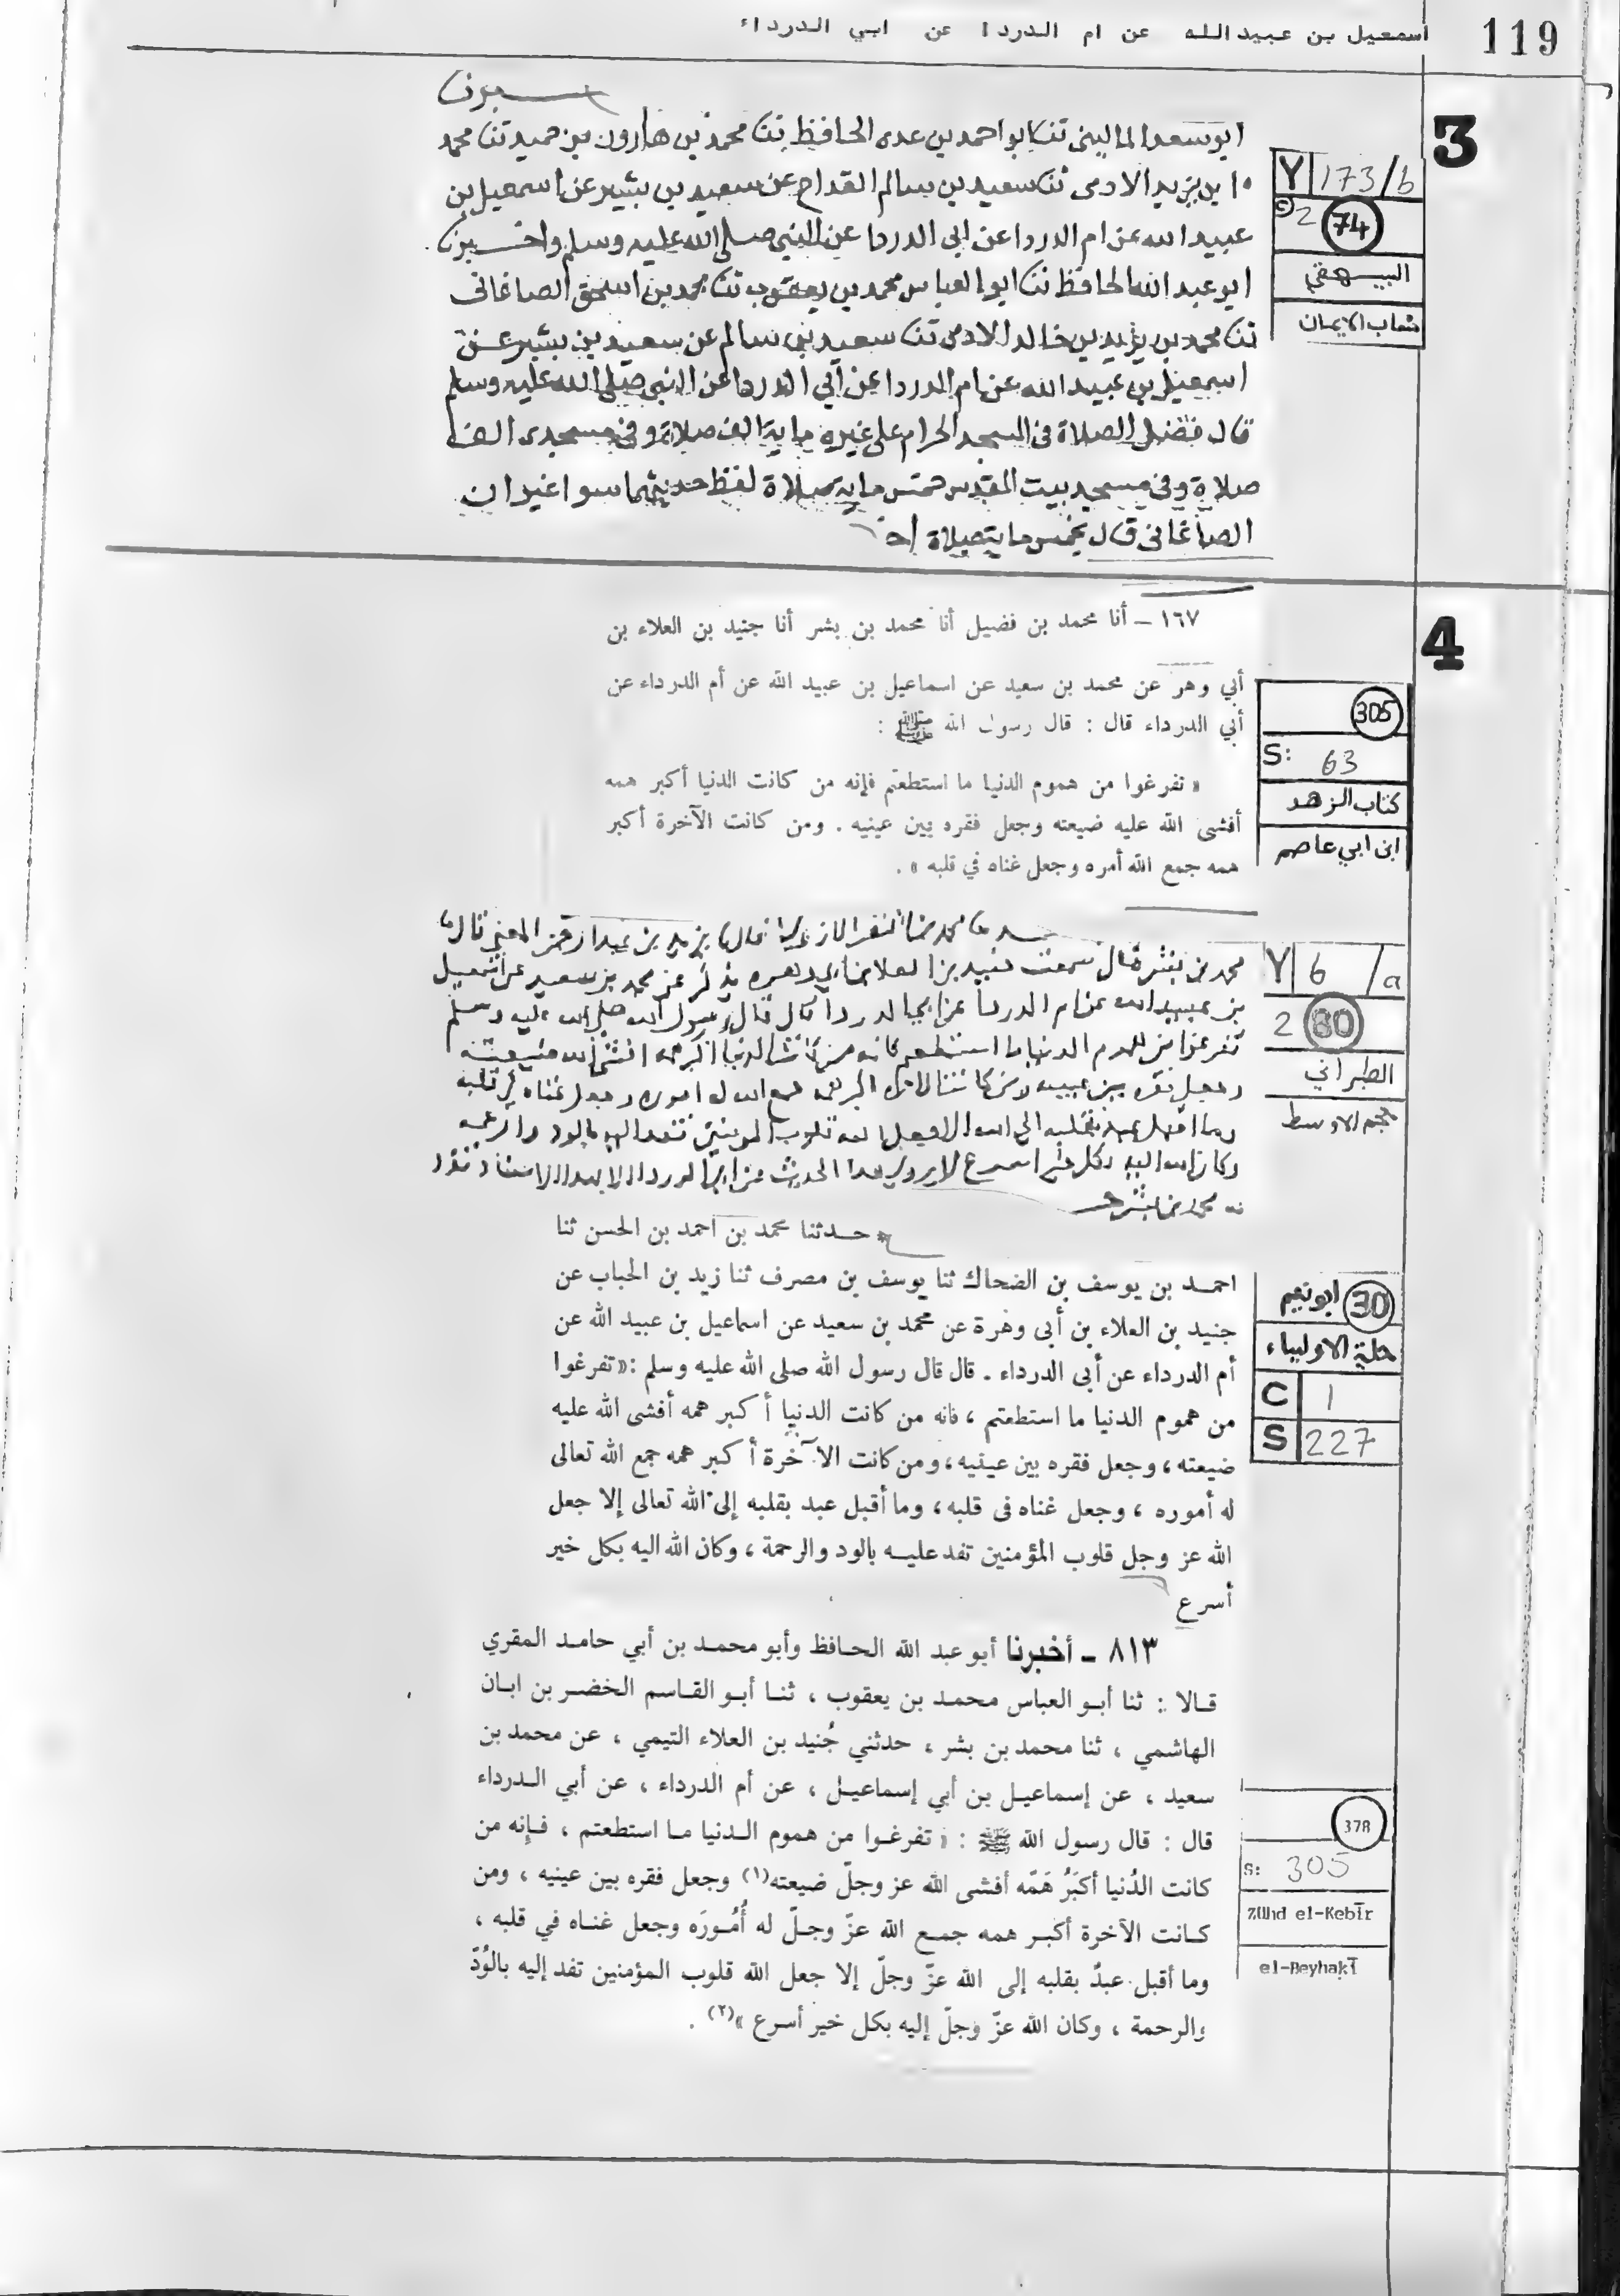 119
اسمعيل بن عبيدالله عن ام الدردا عن ابي الدرداء
3
Y 173/b
2 74
البيهقي
شعاب الايمان
ابو سعد الماليني ثنا ابو احمد بن عدى الحافظ ثنا محمد بن هارون بن حميد ثنا محمد
ابن يزيد الادمى ثنا سعيد بن سالم القداح عن سعيد بن بشير عن اسمعيل بن
عبيد الله عن ام الدردا عن ابى الدردا عن النبي صلى الله عليه وسلم واخبرنا
ابو عبد الله الحافظ ثنا ابو العباس محمد بن يعقوب ثنا محمد بن اسحق الصاغانى
ثنا محمد بن يزيد بن خالد الادمى ثنا سعيد بن سالم عن سعيد بن بشير عن
اسمعيل بن عبيد الله عن ام الدردا عن ابي الدردا عن النبى صلى الله عليه وسلم
قال فضل الصلاة فى المسجد الحرام على غيره ماية الف صلاة و فى مسجدى الف
صلاة وفى مسجد بيت المقدس خمس ماية صلاة لفظ حديثهما سوا غير ان
الصاغانى قال بخمس ماية صلاة
4
305
S: 63
كتاب الزهد
ابن ابي عاصم
١٦٧ – أنا محمد بن فضيل أنا محمد بن بشر أنا جنيد بن العلاء بن
أبي وهر عن محمد بن سعيد عن اسماعيل بن عبيد الله عن أم الدرداء عن
أبي الدرداء قال : قال رسول الله ﷺ :
« تفرغوا من هموم الدنيا ما استطعتم فإنه من كانت الدنيا أكبر همه
أفشى الله عليه ضيعته وجعل فقره بين عينيه . ومن كانت الآخرة أكبر
همه جمع الله أمره وجعل غناه في قلبه » .
Y 6 /a
2 80
الطبراني
معجم الاوسط
محمد بن بشر قال سمعت جنيد بن العلا بن ابي وهره يذكر عن محمد بن سعيد عن اسمعيل
بن عبيد الله عن ام الدردا عن ابي الدردا قال قال رسول الله صلى الله عليه وسلم
تفرغوا من هموم الدنيا ما استطعتم فانه من كانت الدنيا اكبر همه افشى الله ضيعته
وجعل فقره بين عينيه ومن كانت الاخره اكبر همه جمع الله له اموره وجعل غناه في قلبه
وما اقبل عبد بقلبه الى الله الا جعل الله قلوب المومنين تفد اليه بالود والرحمه
وكان الله اليه بكل خير اسرع لا يروى هذا الحديث عن ابي الدردا الا بهذا الاسناد تفرد
به محمد بن بشر
30 ابو نعيم
حلية الاولياء
C 1
S 227
* حدثنا محمد بن احمد بن الحسن ثنا
احمد بن يوسف بن الضحاك ثنا يوسف بن مصرف ثنا زيد بن الحباب عن
جنيد بن العلاء بن أبى وهرة عن محمد بن سعيد عن اسماعيل بن عبيد الله عن
أم الدرداء عن أبى الدرداء . قال قال رسول الله صلى الله عليه وسلم : «تفرغوا
من هموم الدنيا ما استطعتم ، فانه من كانت الدنيا أكبر همه أفشى الله عليه
ضيعته ، وجعل فقره بين عينيه ، ومن كانت الآخرة أكبر همه جمع الله تعالى
له أموره ، وجعل غناه فى قلبه ، وما أقبل عبد بقلبه إلى الله تعالى إلا جعل
الله عز وجل قلوب المؤمنين تفد عليه بالود والرحمة ، وكان الله اليه بكل خير
أسرع
٨١٣ – أخبرنا أبو عبد الله الحافظ وأبو محمد بن أبي حامد المقري
قالا : ثنا أبو العباس محمد بن يعقوب ، ثنا أبو القاسم الخضر بن ابان
الهاشمي ، ثنا محمد بن بشر ، حدثني جُنيد بن العلاء التيمي ، عن محمد بن
سعيد ، عن إسماعيل بن أبي إسماعيل ، عن أم الدرداء ، عن أبي الدرداء
قال : قال رسول الله ﷺ : « تفرغوا من هموم الدنيا ما استطعتم ، فإنه من
كانت الدُنيا أكبَرُ هَمّه أفشى الله عز وجلّ ضيعته(١) وجعل فقره بين عينيه ، ومن
كانت الآخرة أكبر همه جمع الله عزّ وجلّ له أُمُورَه وجعل غناه في قلبه ،
وما أقبل عبدٌ بقلبه إلى الله عزّ وجلّ إلا جعل الله قلوب المؤمنين تفد إليه بالوُدّ
والرحمة ، وكان الله عزّ وجلّ إليه بكل خير أسرع »(٢) .
378
S: 305
Zühd el-Kebīr
el-Beyhaḳī